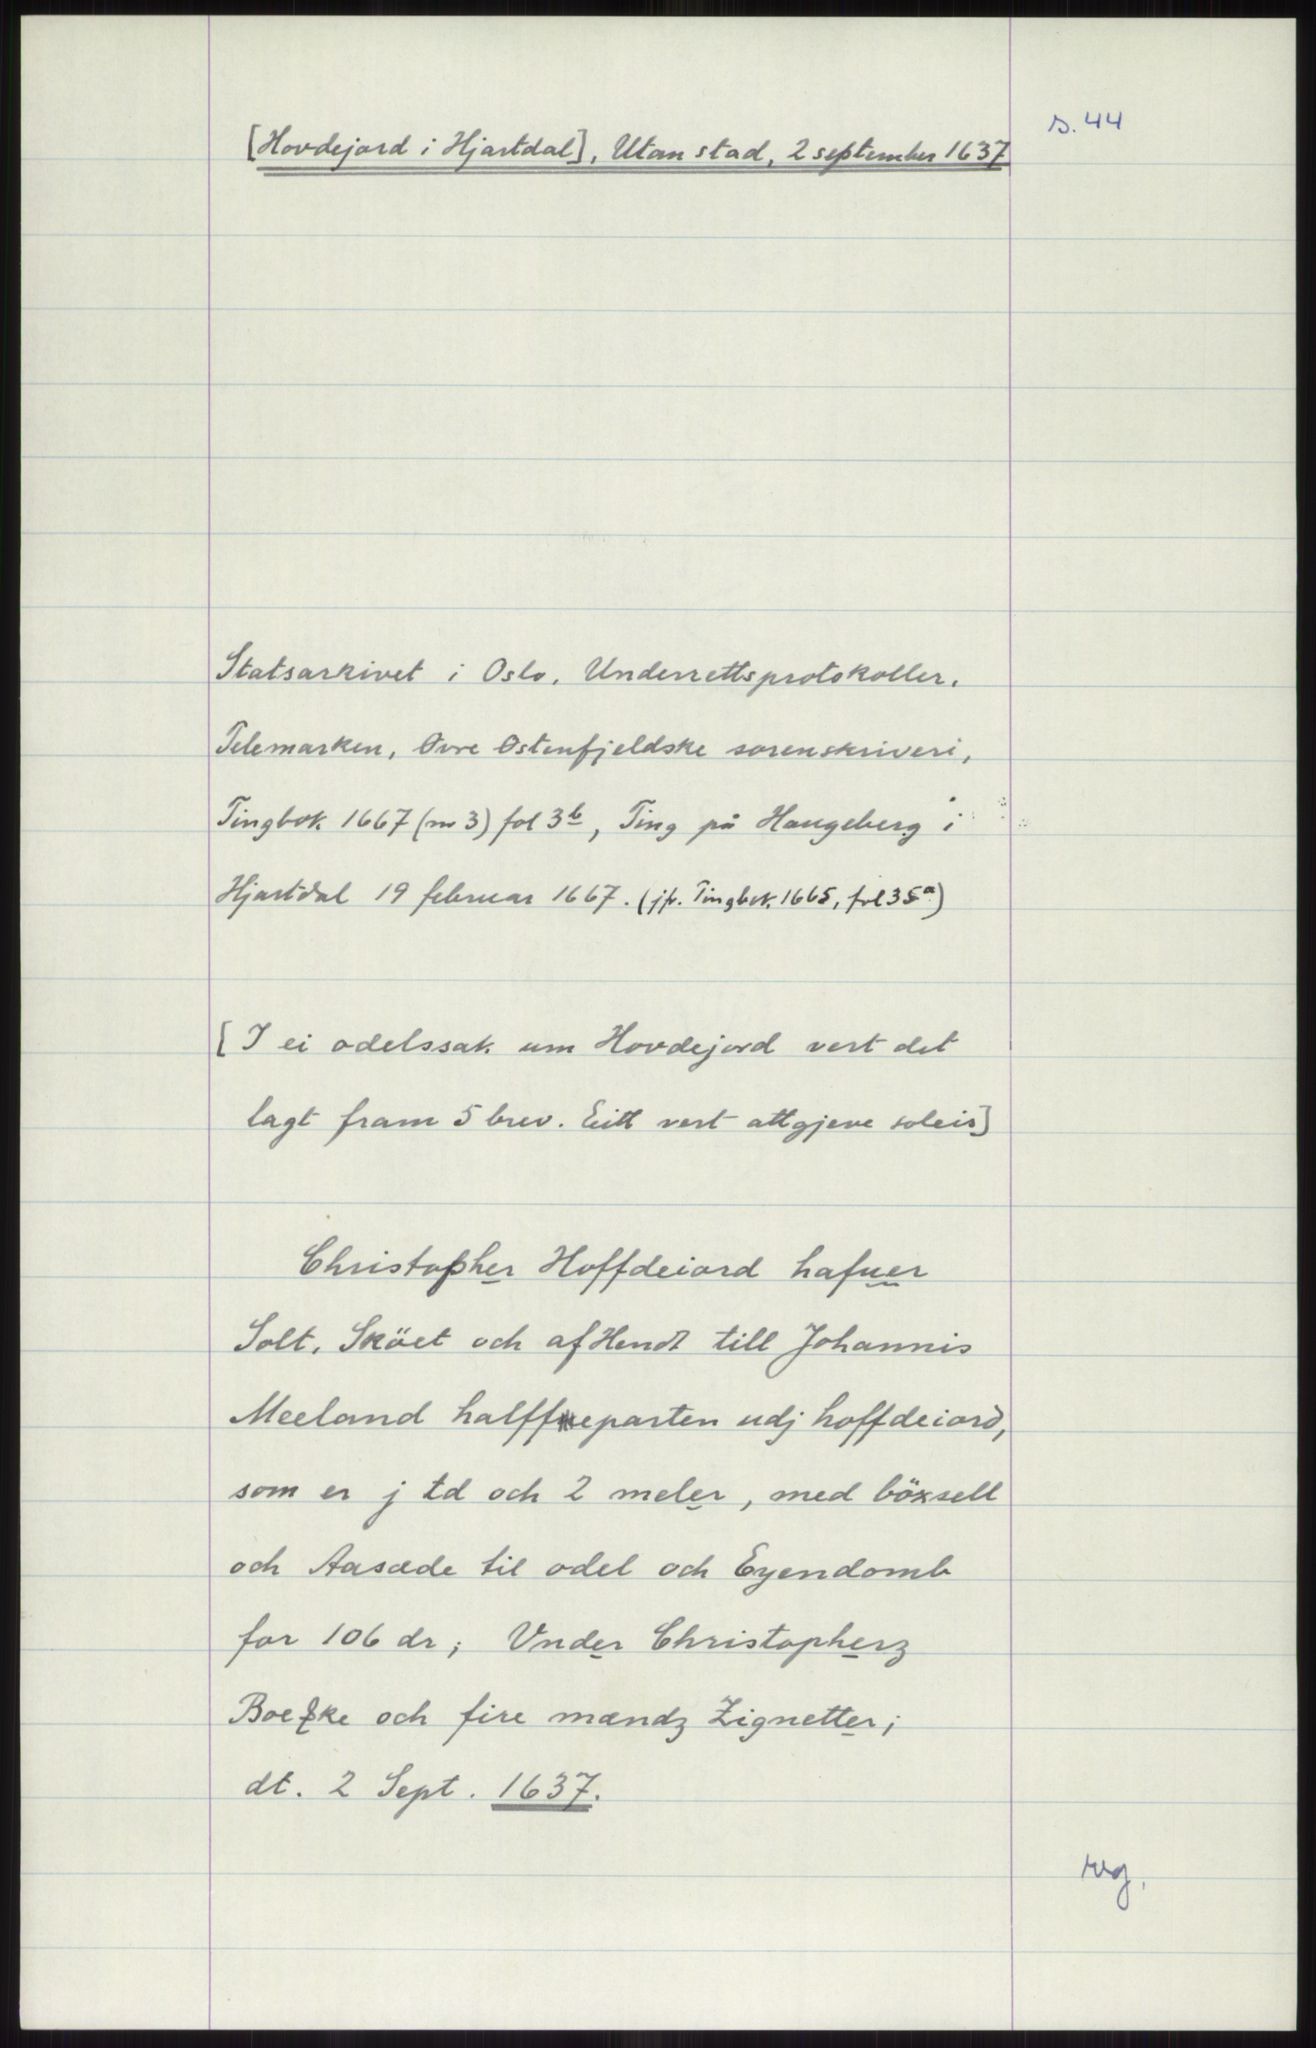 s. 44
[Hovdejord i Hjartdal], Utan stad, 2 september 1637
Statsarkivet i Oslo, Underrettsprotokoller,
Telemarken, Øvre Østenfjeldske sorenskriveri,
Tingbok 1667 (nr 3) fol 3b, Ting på Haugeberg i
Hjartdal 19 februar 1667. (jfr. Tingbok 1665, fol 35a)
[I ei odelssak um Hovdejord vert det
lagt fram 5 brev. Eitt vert attgjeve soleis]
Christopher Hoffdeiord hafuer
Solt, Sköet och af Hendt till Johannis
Meeland halffueparten udj hoffdeiord,
som er j td och 2 meler, med böxsell
och Aasæde til odel och Eyendomb
for 106 dr; Vnder Christopherz
Boeßke och fire mændz Zignetter;
dt. 2 Sept. 1637.
reg.